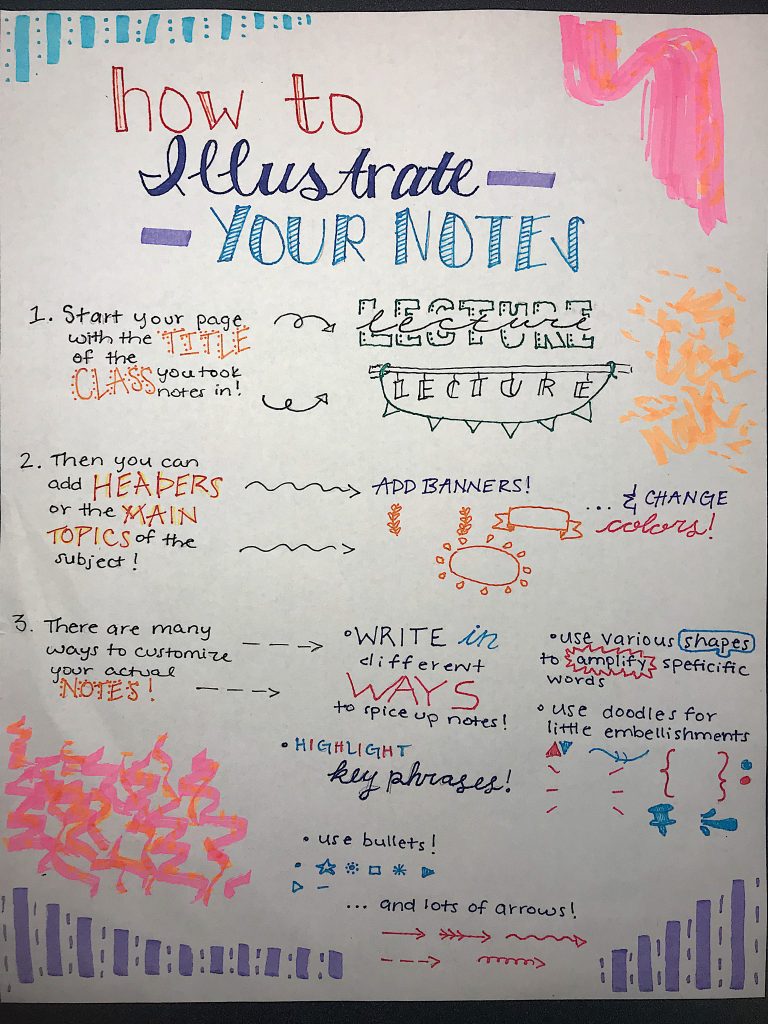 how to
Illustrate
YOUR NOTES
1. Start your page
with the TITLE
of the
CLASS you took
notes in!
LECTURE
lecture
LECTURE
2. Then you can
add HEADERS
or the MAIN
TOPICS of the
subject!
ADD BANNERS!
... & CHANGE
colors!
3. There are many
ways to customize
your actual
NOTES!
• WRITE in
different
WAYS
to spice up notes!
• HIGHLIGHT
key phrases!
• use various shapes
to amplify speficific
words
• use doodles for
little embellishments
• use bullets!
... and lots of arrows!